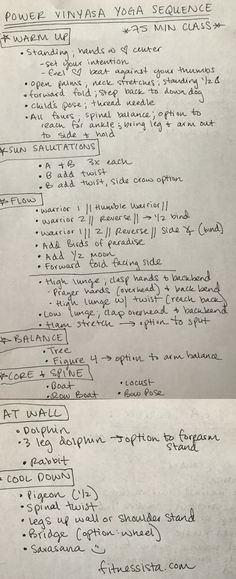 POWER VINYASA YOGA SEQUENCE
*75 MIN CLASS*
*WARM UP
• Standing, hands @ ♡ center
- set your intention
- feel ♡ beat against your thumbs
• open palms, neck stretches, standing 1/2
• forward fold, step back to down dog
• Child's pose; thread needle
• All fours, spinal balance; option to
reach for ankle; bring leg & arm out
to side & hold
*SUN SALUTATIONS
• A + B 3x each
• B add twist
• B add twist, side crow option
*FLOW
• Warrior 1 || Humble Warrior ||
• Warrior 2 || Reverse || → 1/2 bind
• Warrior 1 || 2 || Reverse || Side (bind)
• Add Birds of Paradise
• Add 1/2 moon
• Forward fold facing side
• High lunge, clasp hands & backbend
• Prayer hands (overhead) + back bend
• High lunge w/ twist (reach back)
• Low lunge, clap overhead & backbend
• Ham stretch → option to split
*BALANCE
• Tree
• Figure 4 → option to arm balance
*CORE + SPINE
• Boat • Locust
• Row Boat • Bow Pose
AT WALL
• Dolphin
• 3 leg dolphin → option to forearm
stand
• Rabbit
*COOL DOWN
• Pigeon (1/2)
• Spinal twist
• legs up wall or shoulder stand
• Bridge (option: wheel)
• Savasana
fitnessista.com